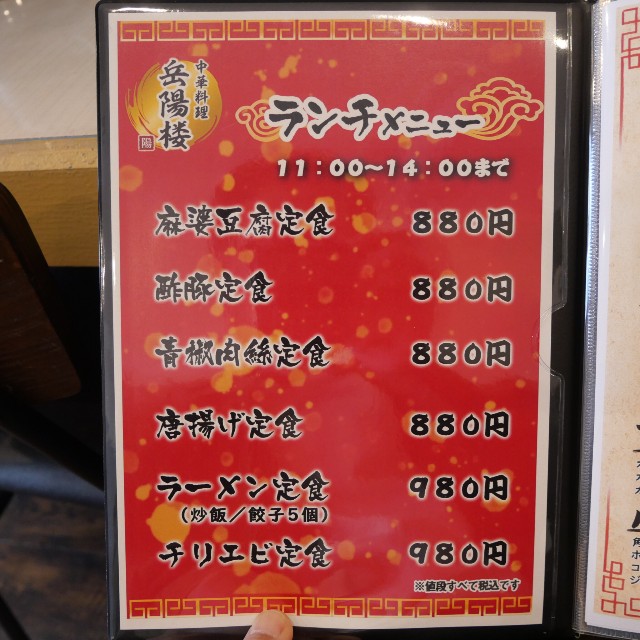 中華料理
岳陽楼
陽
ランチメニュー
11：00〜14：00まで
麻婆豆腐定食 880円
酢豚定食 880円
青椒肉絲定食 880円
唐揚げ定食 880円
ラーメン定食 980円
（炒飯／餃子5個）
チリエビ定食 980円
※値段すべて税込です